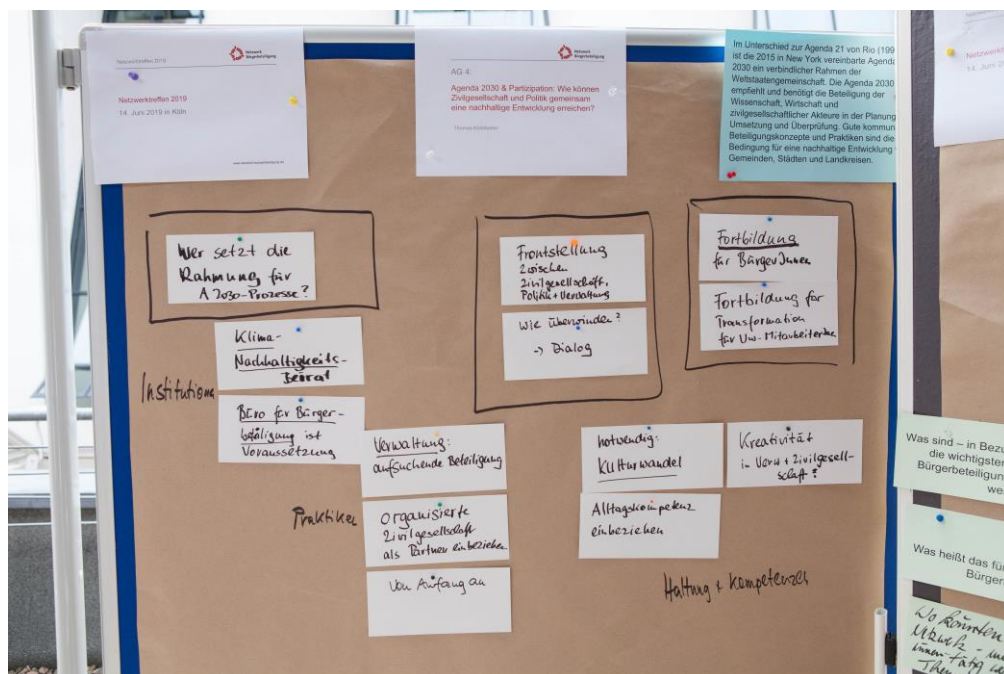 Netzwerktreffen 2019
Netzwerk
Bürgerbeteiligung
Netzwerktreffen 2019
14. Juni 2019 in Köln
Netzwerk
Bürgerbeteiligung
AG 4:
Agenda 2030 & Partizipation: Wie können
Zivilgesellschaft und Politik gemeinsam
eine nachhaltige Entwicklung erreichen?
Im Unterschied zur Agenda 21 von Rio (199
ist die 2015 in New York vereinbarte Agenda
2030 ein verbindlicher Rahmen der
Weltstaatengemeinschaft. Die Agenda 2030
empfiehlt und benötigt die Beteiligung der
Wissenschaft, Wirtschaft und
zivilgesellschaftlicher Akteure in der Planung
Umsetzung und Überprüfung. Gute kommun
Beteiligungskonzepte und Praktiken sind die
Bedingung für eine nachhaltige Entwicklung
Gemeinden, Städten und Landkreisen.
Netzwerktre
14. Juni 20
Wer setzt die
Rahmung für
A 2030-Prozesse?
Klima-
Nachhaltigkeits-
Beirat
Institutionen
Büro für Bürger-
beteiligung ist
Voraussetzung
Frontstellung
zwischen
Zivilgesellschaft,
Politik + Verwaltung
Wie überwinden?
-> Dialog
Fortbildung
für BürgerInnen
Fortbildung für
Transformation
für Vw-MitarbeiterInnen
Verwaltung:
aufsuchende Beteiligung
Praktiken
Organisierte
Zivilgesellschaft
als Partner einbeziehen
Von Anfang an
notwendig:
Kulturwandel
Kreativität
in Verw + Zivilgesell-
schaft?
Alltagskompetenz
einbeziehen
Haltung + Kompetenzen
Was sind – in Bezu
die wichtigsten
Bürgerbeteiligun
we
Was heißt das für
Bürger
Wo könnten